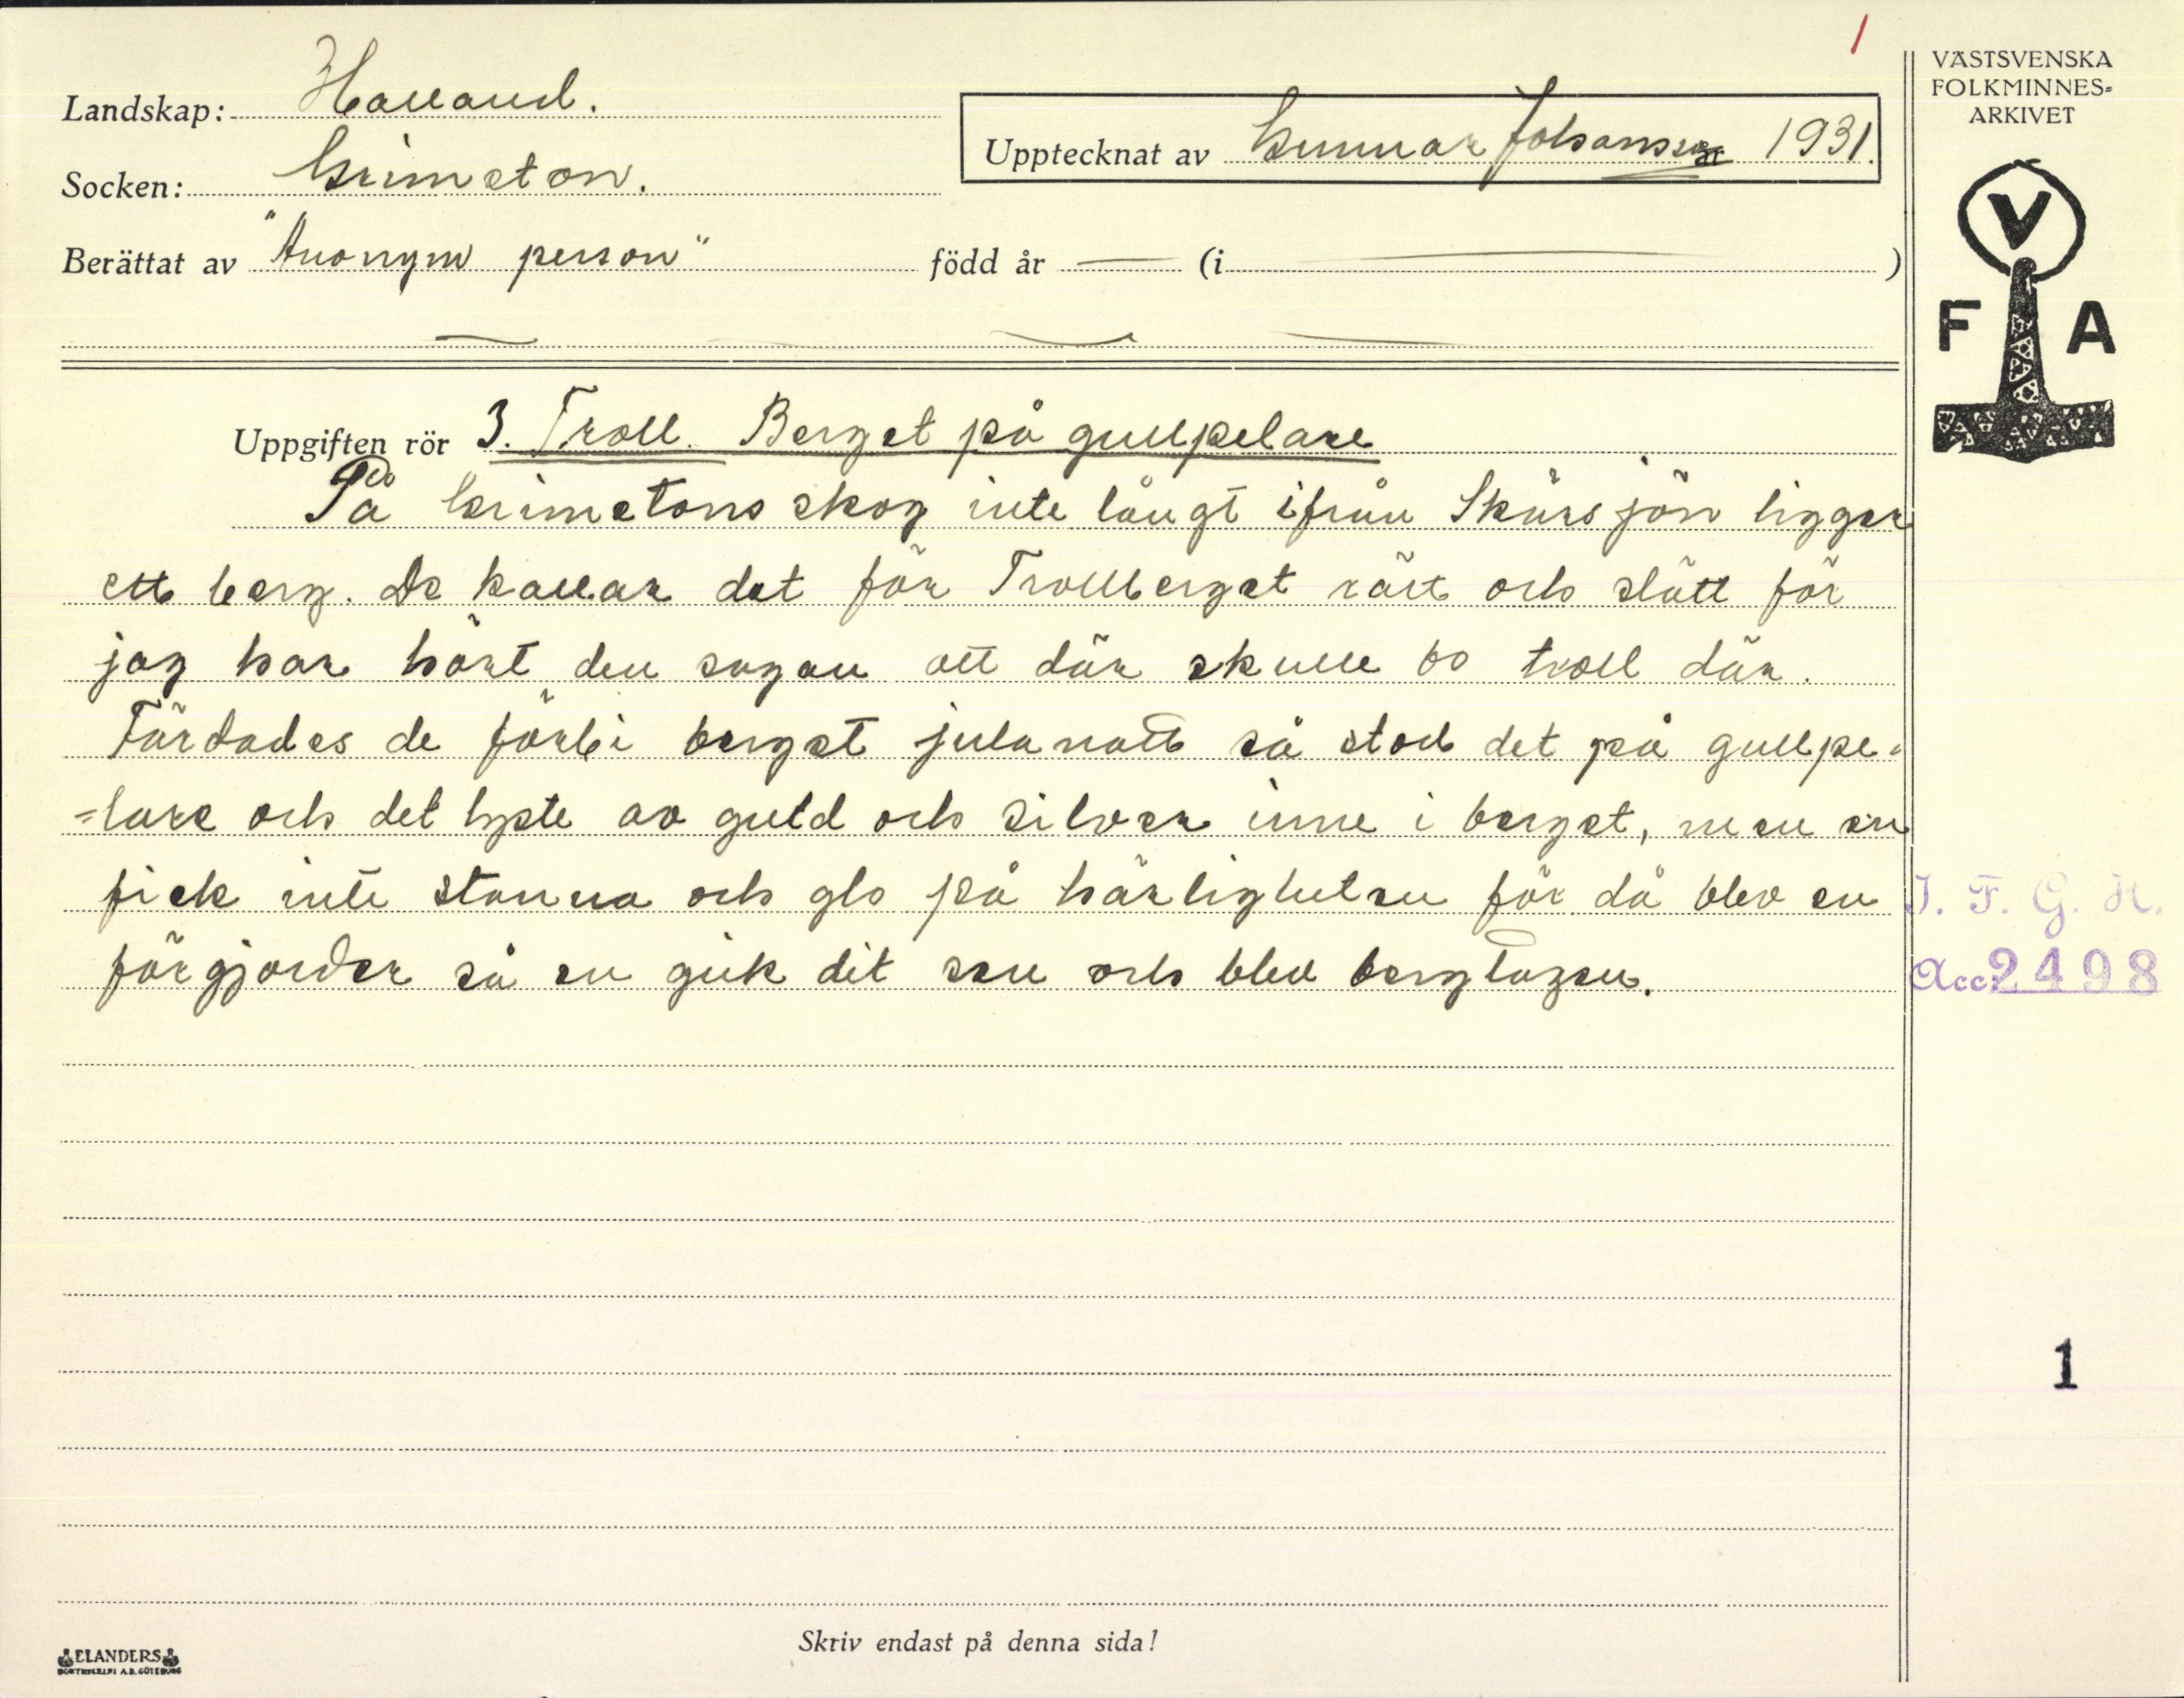 1
VÄSTSVENSKA
FOLKMINNES=
ARKIVET
Landskap: Halland.
Upptecknat av Gunnar Johansson år 1931.
Socken: Grimeton.
Berättat av "Anonym person" född år — (i — )
V
F A
Uppgiften rör 3. Troll. Berget på gullpelare
På Grimetons skog inte långt ifrån Skärsjön ligger
ett berg. De kallar det för Trollberget rätt och slätt för
jag har hört den sagan att där skulle bo troll där.
Färdades de förbi berget julanatt så stod det på gullpe=
=lare och det lyste av guld och silver inne i berget, men en
fick inte stanna och glo på härligheten för då blev en
förgjorder så en gick dit sen och blev bergtagen.
I. F. G. H.
Acc: 2498
1
Skriv endast på denna sida!
ELANDERS
BOKTRYCKERI A.B. GÖTEBORG